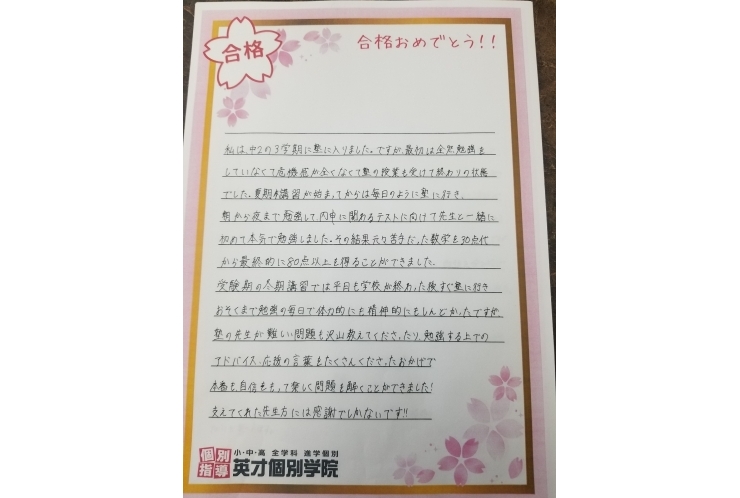 合格
合格おめでとう!!
私は、中2の3学期に塾に入りました。ですが、最初は全然勉強も
していなくて危機感が全くなくて塾の授業も受けて終わりの状態
でした。夏期講習が始まってからは毎日のように塾に行き、
朝から夜まで勉強して、内申に関わるテストに向けて先生と一緒に
初めて本気で勉強しました。その結果元々苦手だった数学も30点代
から最終的に80点以上を得ることができました。
受験期の冬期講習では平日も学校が終わった後すぐ塾に行き
おそくまで勉強の毎日で体力的にも精神的にもしんどかったですが、
塾の先生が難しい問題も沢山教えてくださったり、勉強する上での
アドバイス、応援の言葉をたくさんくださったおかげで
本番も自信をもって楽しく問題を解くことができました!
支えてくれた先生方には感謝でしかないです!!
個別指導
小・中・高 全学科 進学個別
英才個別学院